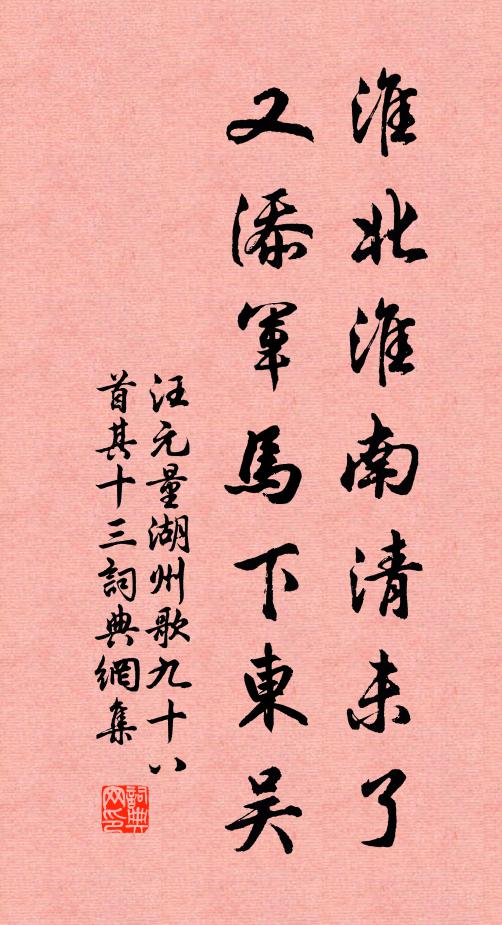 淮北淮南清未了
又添軍馬下東吴
汪元量湖州歌九十八
首其十三詞典網集
詞典網印